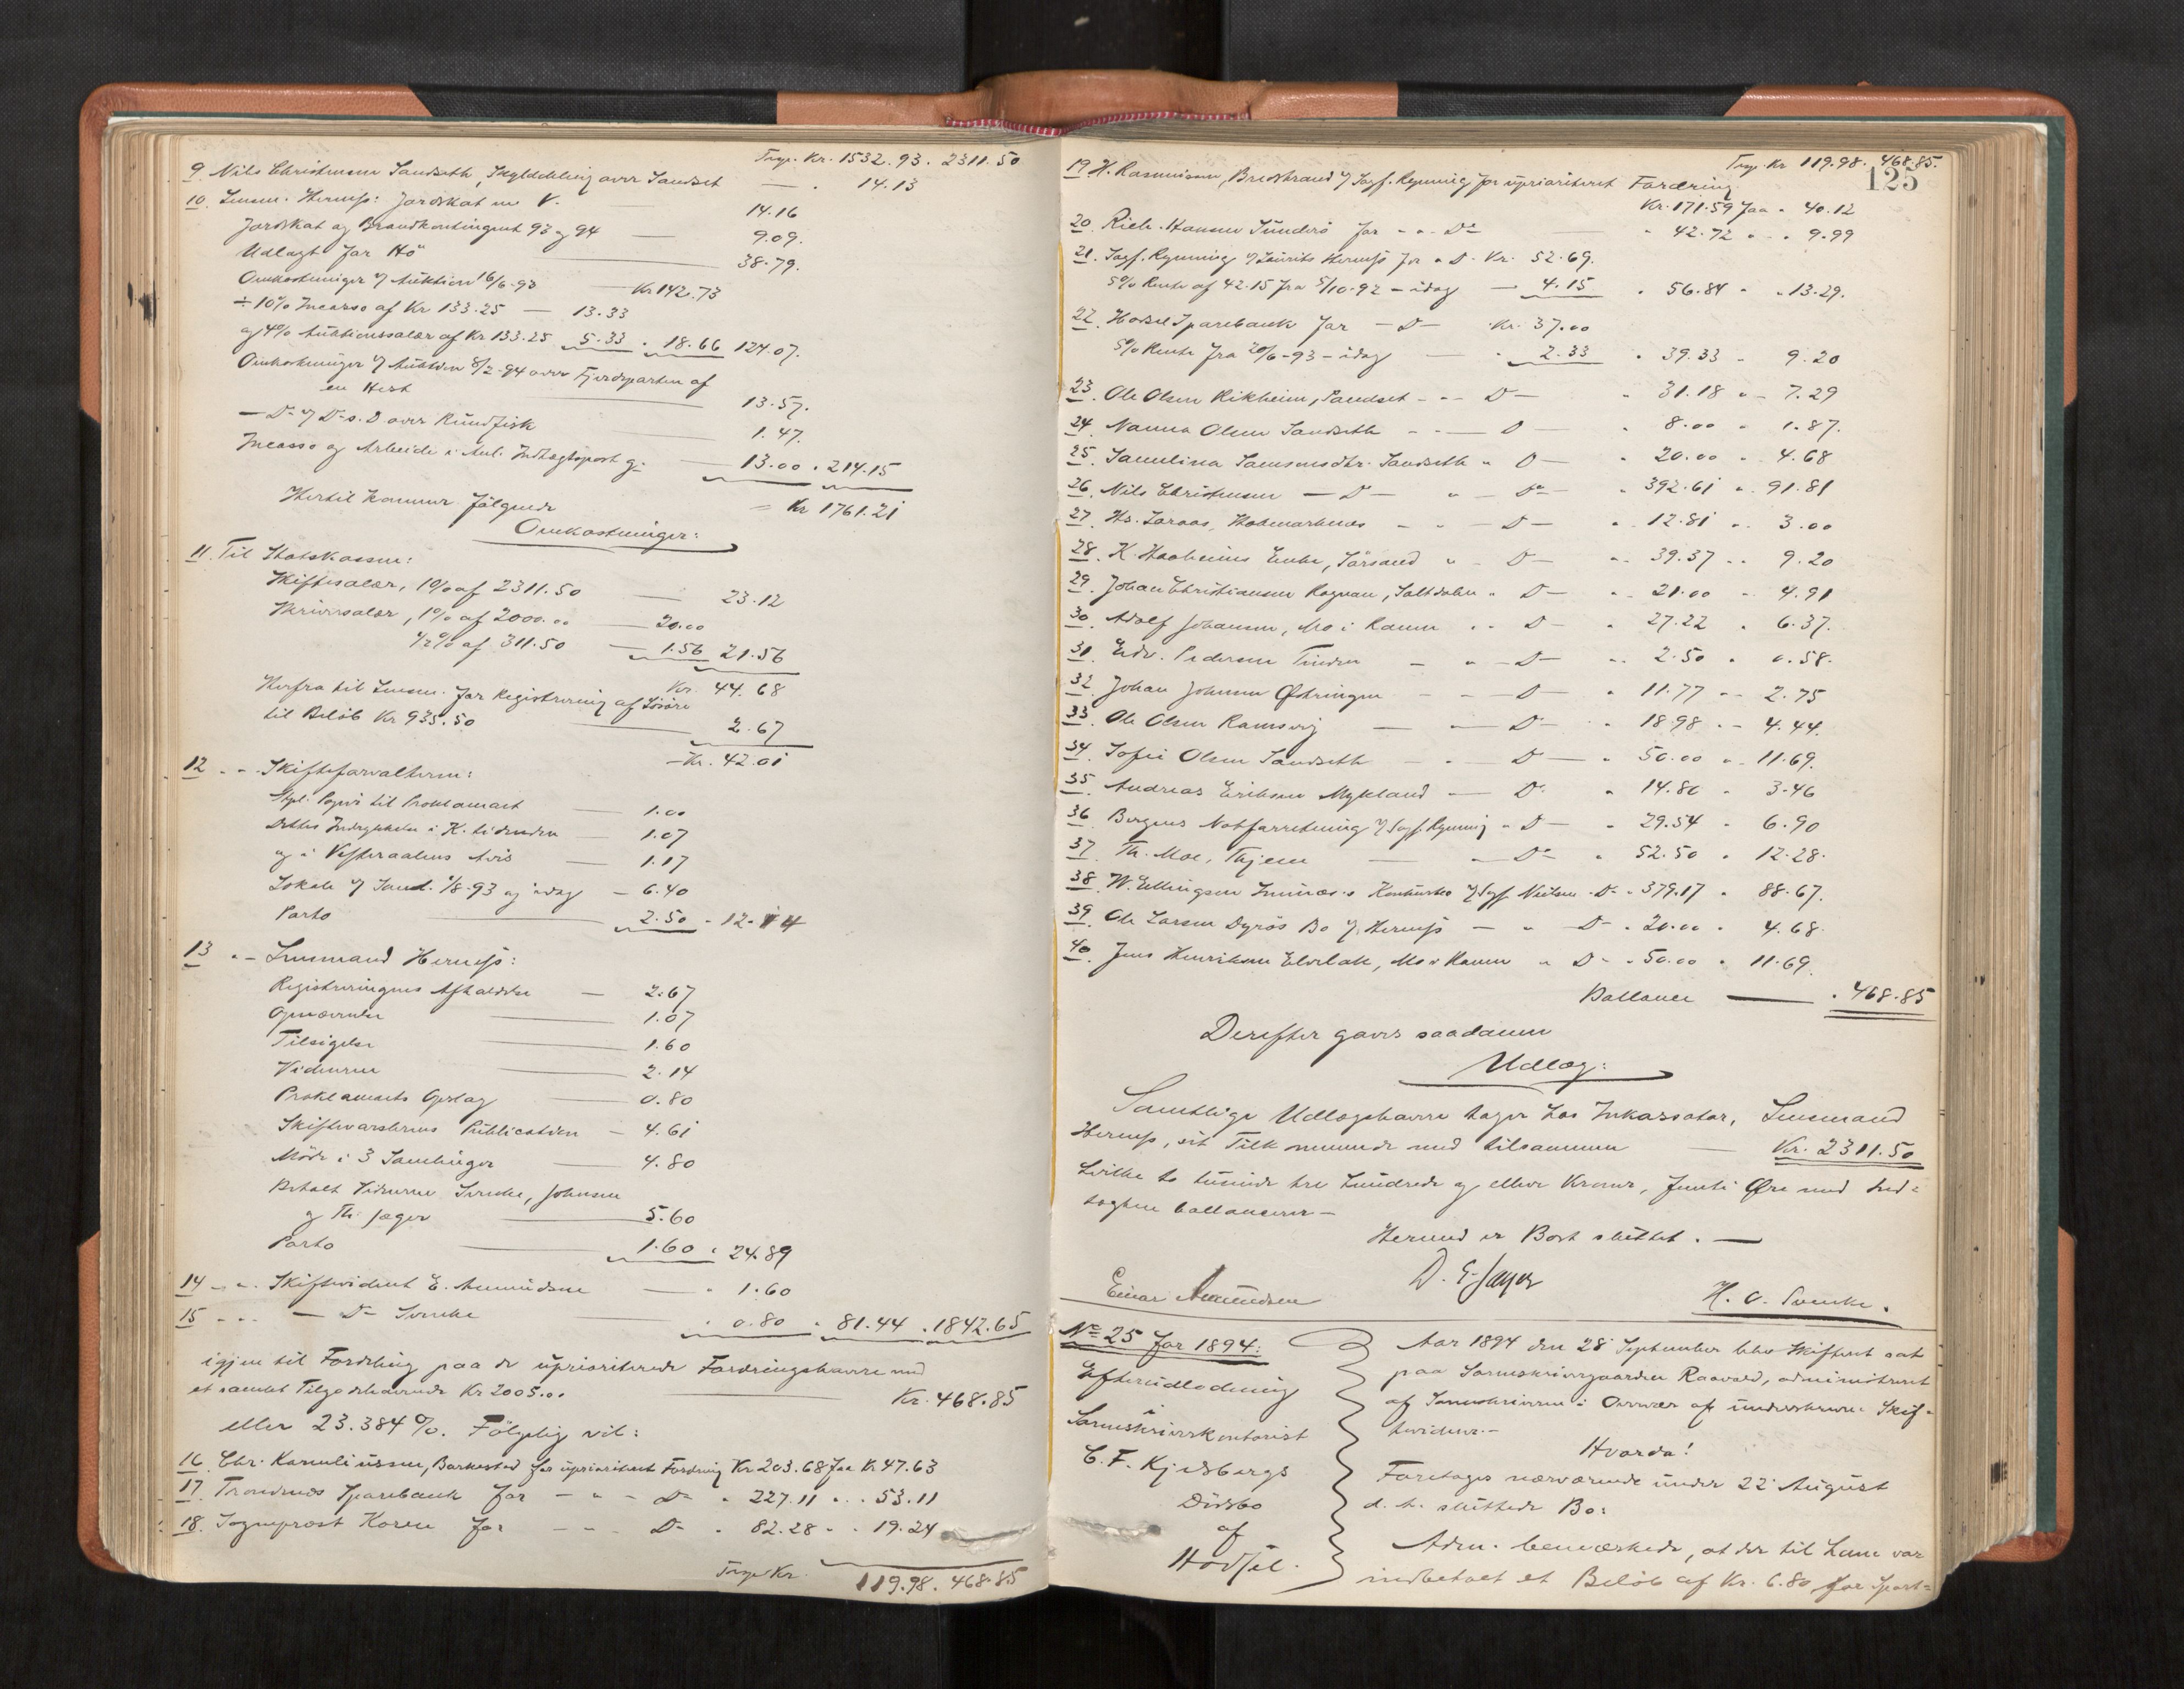 Trsp. Kr. 1532.93. 2311.50
9 Nils Christensen Sandseth, Skylddeling over Sandset — " 14.13
10. Lensm. Herness: Jordskat m V. — 14.16
Jordskat og Brandkontingent 93 og 94 — 9.09.
Udlagt for Hö — 38.79.
Omkostninger v/ Auktion 16/6-93 — Kr 142.73
÷ 10% Incasso af Kr 133.25 — 13.33
og 4% Auktionssalær af Kr 133.25 5.33 " 18.66 124.07.
Omkostninger v/ Auktion 8/2-94 over Fjerdeparten af
en Hest — 13.57.
— Do v/ Do s. D over Rundfisk — 1.47.
Incasso og Arbeide i Anl. Indtægtspost 9: — 13.00 " 214.15
= Kr 1761.21
Hertil kommer fölgende
Omkostninger:
11. Til Statskassen:
Skiftesalær, 1% af 2311.50 — 23.12
Skriversalær, 1% af 2000.00 — 20.00
1/2% af 311.50 — 1.56 21.56
Kr. 44.68
Herfra til Lensm. for Registrering af Lösöre
til Belöb Kr 935.50 — 2.67
Kr. 42.01
12 " " Skifteforvalteren:
Stpl. Papir til Proklamaet — 1.00
Dettes Indrykkelse i K. tidenden — 1.07
og i Vesteraalens Avis — 1.17
Lokale v/ Saml. 1/8-93 og idag — 6.40
Porto — 2.50 " 12.14
13 " " Lensmand Herness:
Registreringens Afholdelse — 2.67
Opnævnelse — 1.07
Tilsigelse — 1.60
Vidnerne — 2.14
Proklamaets Opslag — 0.80
Skiftevarslernes Publication — 4.61
Möde i 3 Samlinger — 4.80
Betalt Vidnerne Svencke, Johnsen
og Th. Jæger — 5.60
Porto — 1.60 " 24.89
14 " " Skiftevidnet E. Amundsen — " 1.60
15 " " — Do Svencke — " 0.80 " 81.44 " 1842.65
igjen til Fordeling paa de uprioriterede Fordringshavere med
et samlet Tilgodehavende Kr 2005.00 — Kr. 468.85
eller 23.384%. Fölgelig vil:
16. Chr. Korneliussen, Barkestad for uprioriteret Fordring Kr 203.68 faa Kr 47.63
17. Trondenes Sparebank for — " — Do " 227.11 " " 53.11
18. Sogneprest Koren for — " — Do " 82.28 " " 19.24
Trsp. Kr. 119.98. 468.85
Trsp. Kr 119.98. 468.85.
125
19. H. Rasmussen, Bredstrand v/ Sagf. Rynning for uprioriteret Fordring
Kr. 171.59 faa " 40.12
20. Rich. Hansen Sünderö for " " Do " 42.72 " " 9.99
21. Sagf. Rynning v/ Laurits Herness for " D. Kr. 52.69.
5% Rente af 42.15 fra 5/10-92 – idag — 4.15 " 56.84 " " 13.29.
22. Hadsel Sparebank for — D — Kr. 37.00
5% Rente fra 20/6-93 – idag — " 2.33 " 39.33 " 9.20
23. Ole Olsen Rikheim, Sandset — " D — " 31.18 " " 7.29
24. Nanna Olsen Sandseth — " — D — " 8.00 " 1.87.
25. Samelina Samsonsdtr. Sandseth " D — " 20.00 " 4.68
26. Nils Christensen — D — " — Do " 392.61 " 91.81
27. Hs. Laraas, — " — D — " 12.81 " 3.00
28. K. Haaheims Enke, " D — " 39.37 " 9.20
29. Johan Christiansen Rognan, Saltdalen " D — " 21.00 " 4.91
30. Adolf Johansen, Mo i Ranen " D — " 27.22 " 6.37.
31. Edv. Pedersen Tinden — " — D — " 2.50 " 0.58.
32. Johan Johnsen Östringen — " — D — " 11.77 " 2.75
33. Ole Olsen Ramsvig — " — D — " 18.98 " 4.44.
34. Sofie Olsen Sandseth — " — D — " 50.00 " 11.69.
35. Andreas Eriksen Mykland — D. " 14.80 " 3.46
36. Bergens Notforretning v/ Sagf. Rynning " D — " 29.54 " 6.90
37. Th. Moe, Thjem — " Do " 52.50 " 12.28.
38. W. Ellingsen s Konkursbo v/ Sagf. Nielsen D " 379.17 " 88.67.
39. Ole Larsen Dyrös Bo v/ Herness — " D — " 20.00 " 4.68.
40. Jens Henriksen , Mo i Ranen " D — " 50.00 " 11.69.
Ballance — " 468.85
Derefter gaves saadanne
Udlæg:
Samtlige Udlægshavere tager hos Inkassator, Lensmand
Herness, sit Tilkommende med tilsammen — Kr. 2311.50
hvilke to tusinde tre hundrede og elleve Kroner, femti Öre med Ind=
tægten ballancerer —
Hermed er Boet sluttet. —
D. E. Jæger
Einar Amundsen
H. O. Svencke.
No 25 for 1894:
Efterudlodning
i
Sorenskriverkontorist
C. F. Kjelsbergs
Dödsbo
af
Hadsel.
Aar 1894 den 28 September blev Skifteret sat
paa Sorenskrivergaarden Raavold, administreret
af Sorenskriveren i Overvær af underskrevne Skif=
tevidner. —
Hvorda!
Foretoges nærværende under 22 August
d. A. sluttede Bo:
Adm. bemærkede, at der til ham var
indbetalt et Belöb af Kr. 6.80 for Sport=